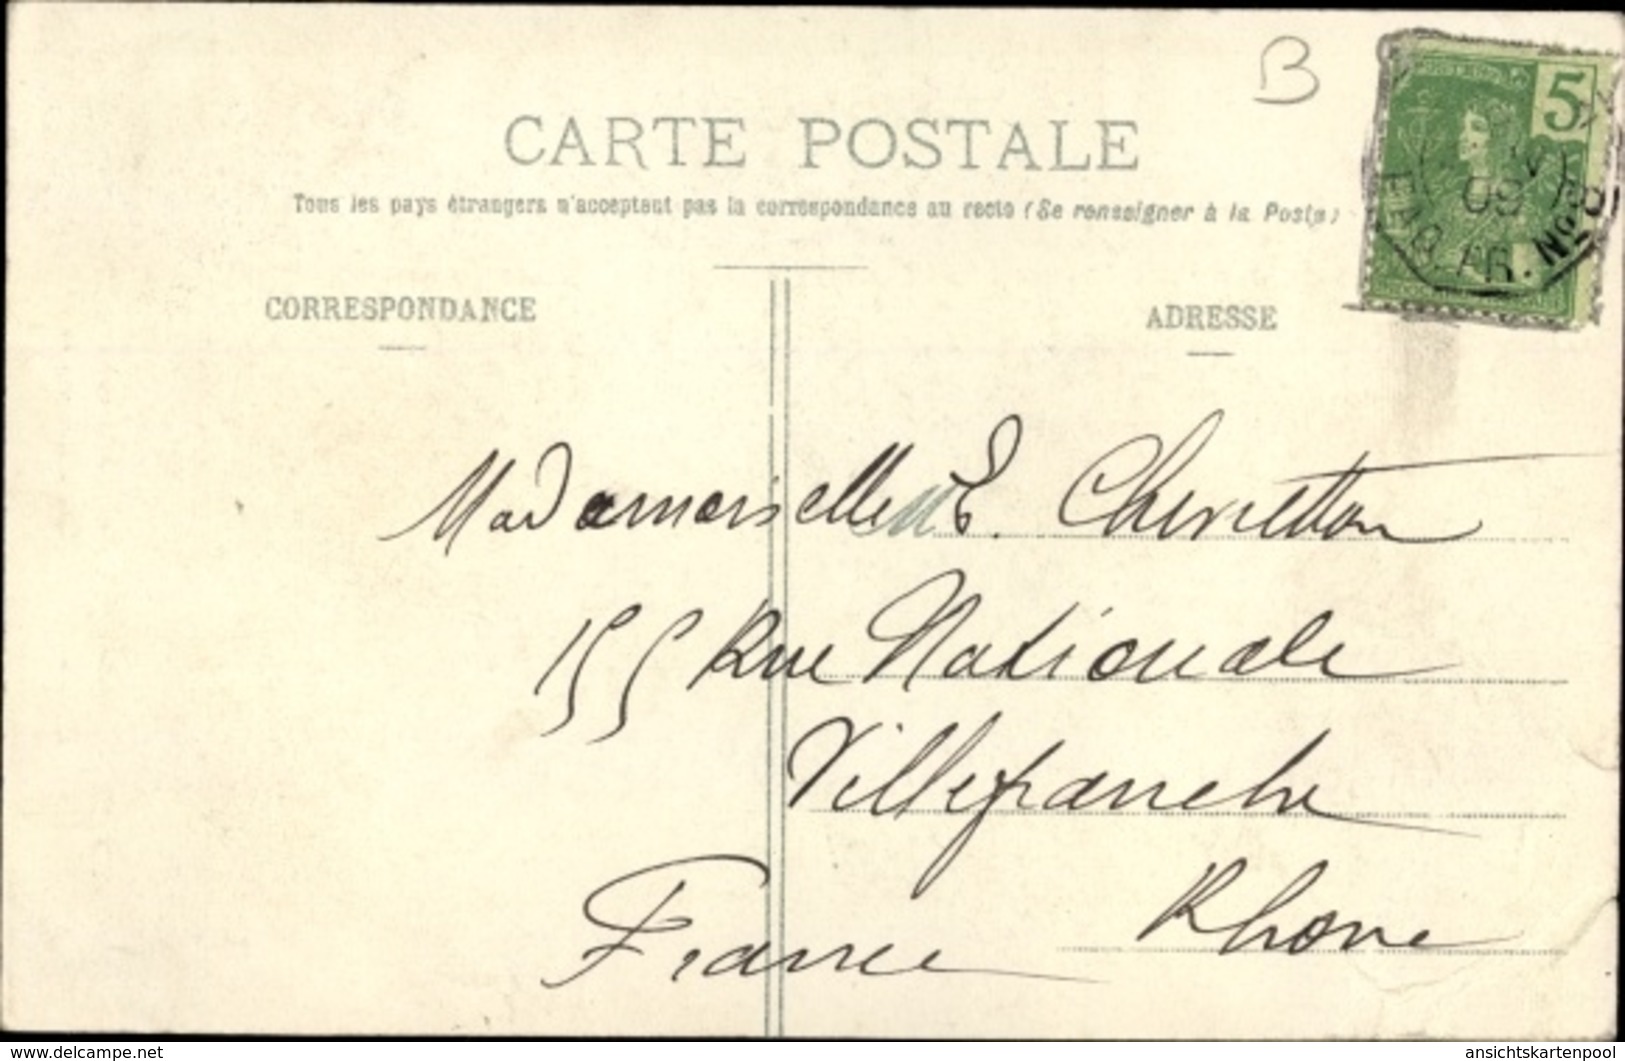 B
CARTE POSTALE
Tous les pays étrangers n'acceptent pas la correspondance au recto (Se renseigner à la Poste)
5
09
PAQ. FR. No 8
CORRESPONDANCE
ADRESSE
Mademoiselle E. Chervetton
155 Rue Nationale
Villefranche
Rhone
France
www.delcampe.net
ansichtskartenpool